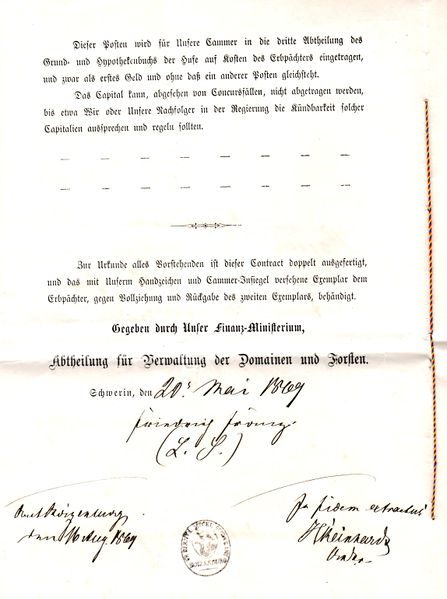 Dieser Posten wird für Unsere Cammer in die dritte Abtheilung des
Grund- und Hypothekenbuchs der Hufe auf Kosten des Erbpächters eingetragen,
und zwar als erstes Geld und ohne daß ein anderer Posten gleichsteht.
Das Capital kann, abgesehen von Concursfällen, nicht abgetragen werden,
bis etwa Wir oder Unsere Nachfolger in der Regierung die Kündbarkeit solcher
Capitalien aussprechen und regeln sollten.
Zur Urkunde alles Vorstehenden ist dieser Contract doppelt ausgefertigt,
und das mit Unserm Handzeichen und Cammer-Insiegel versehene Exemplar dem
Erbpächter, gegen Vollziehung und Rückgabe des zweiten Exemplars, behändigt.
Gegeben durch Unser Finanz-Ministerium,
Abtheilung für Verwaltung der Domainen und Forsten.
Schwerin, den 20. Mai 1869
Friedrich Franz.
(L. S.)
den 16 Aug. 1869
In fidem extractus